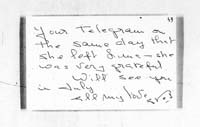 49
Your Telegram on
the same day that
she left & me - she
was very grateful
Will see you
in July
all my love